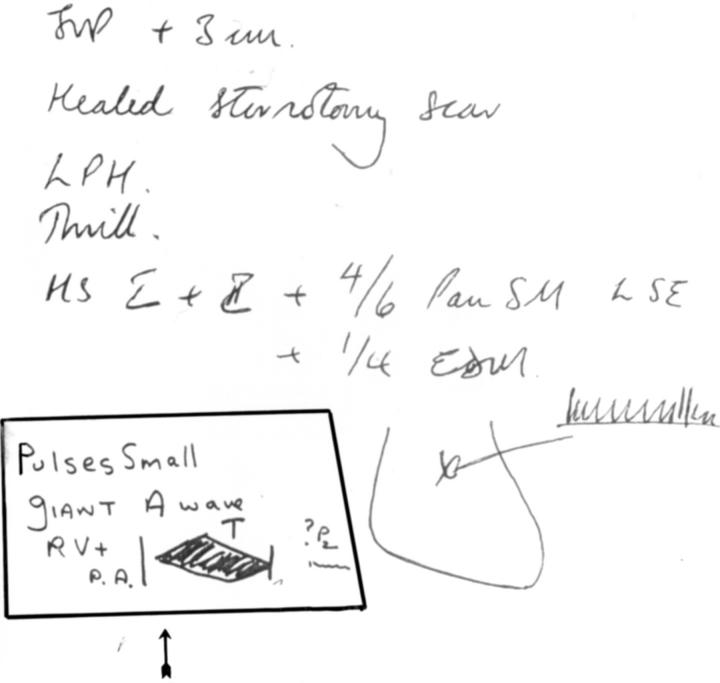 JVP + 3 cm.
Healed sternotomy scar
LPH.
Thrill.
HS I + II + 4/6 Pan SM LSE
+ 1/4 EDM.
Pulses Small
GIANT A wave
T
RV+
?P2
P.A.